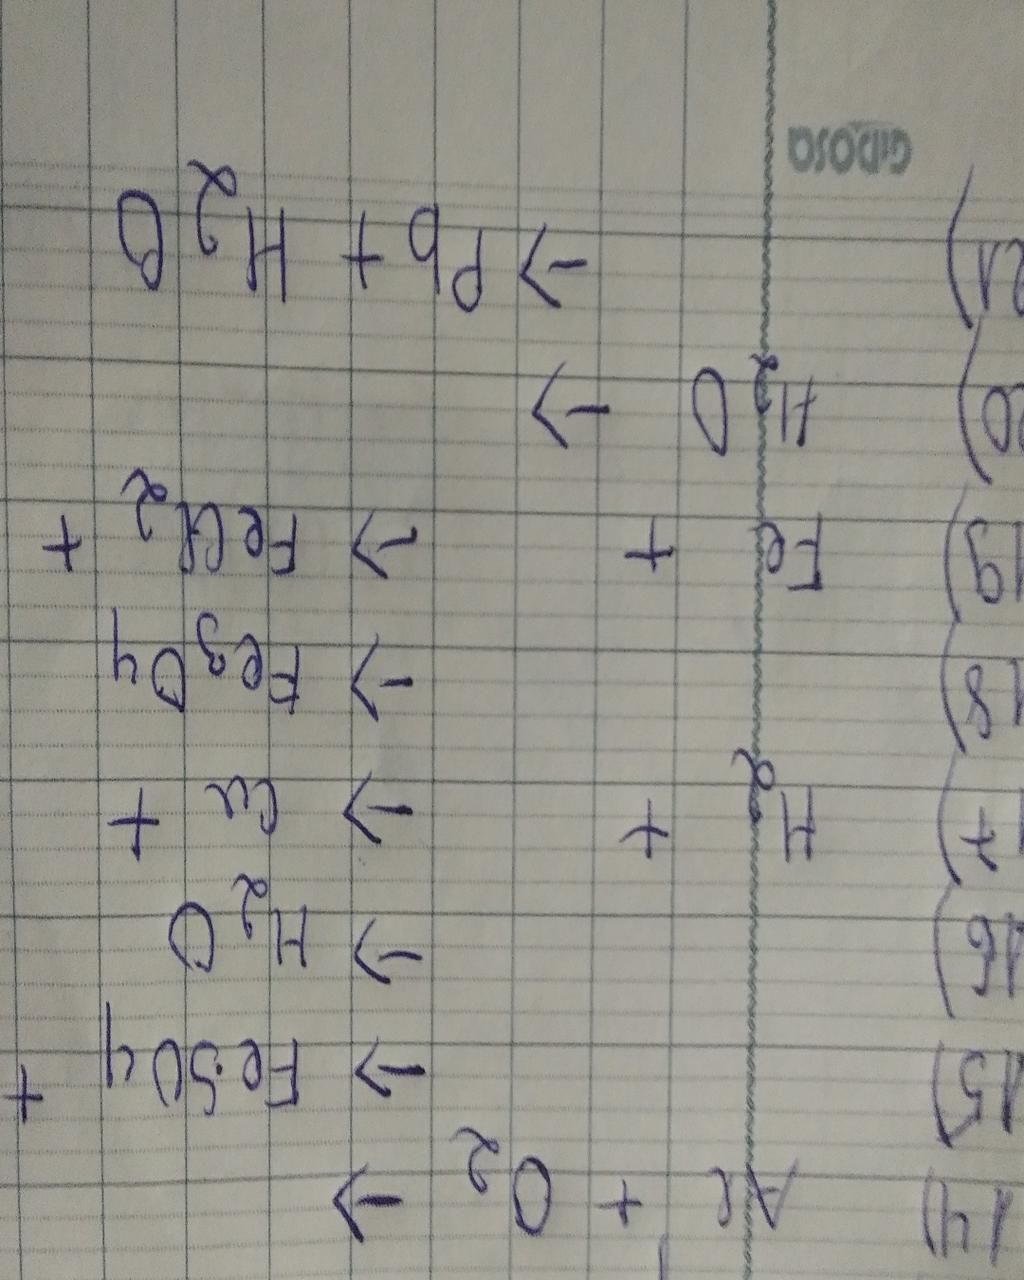 14) Al + O2 →
15) → FeSO4 +
16) → H2O
17) H2 + → Cu +
18) → Fe3O4
19) Fe + → FeCl2 +
20) H2O →
21) → Pb + H2O
GIDOSA